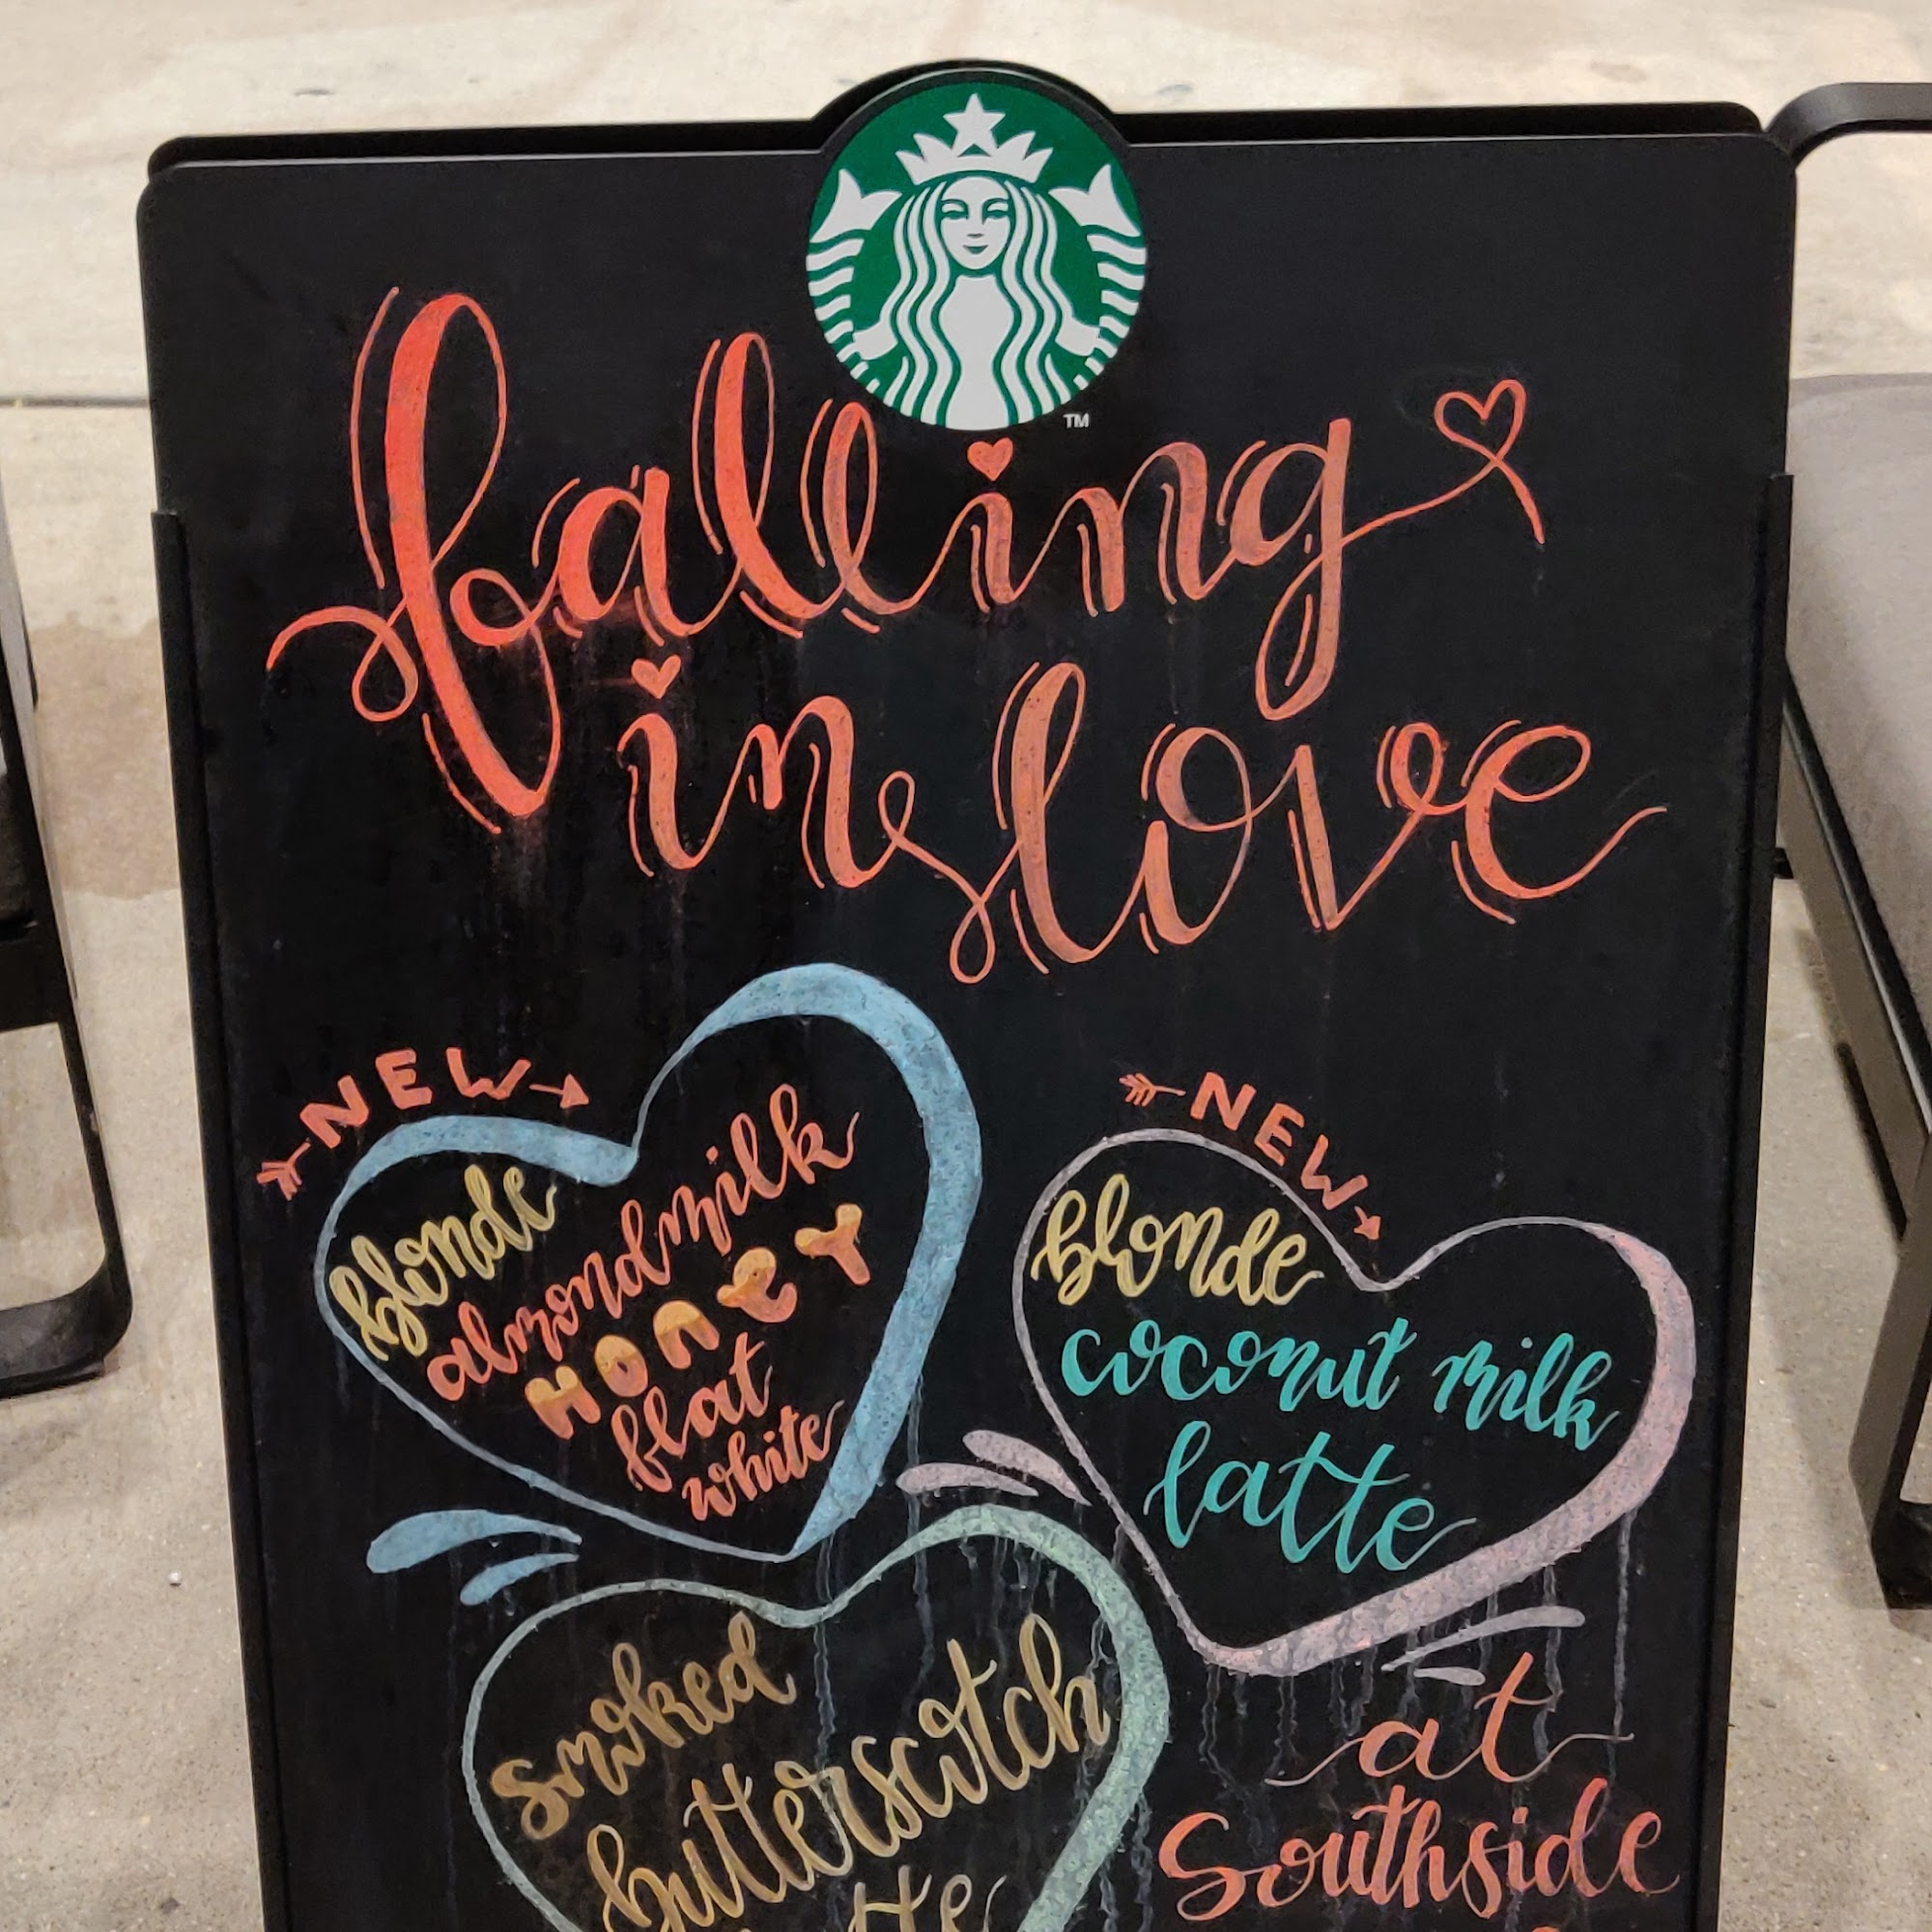 TM
falling
in love
NEW
blonde
almondmilk
HONEY
flat
white
NEW
blonde
coconut milk
latte
smoked
butterscotch
at
Southside